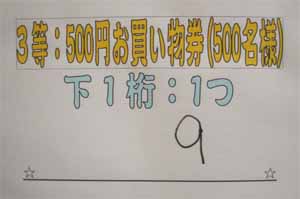 3等：500円お買い物券(500名様)
下1桁：1つ
9
☆ ☆